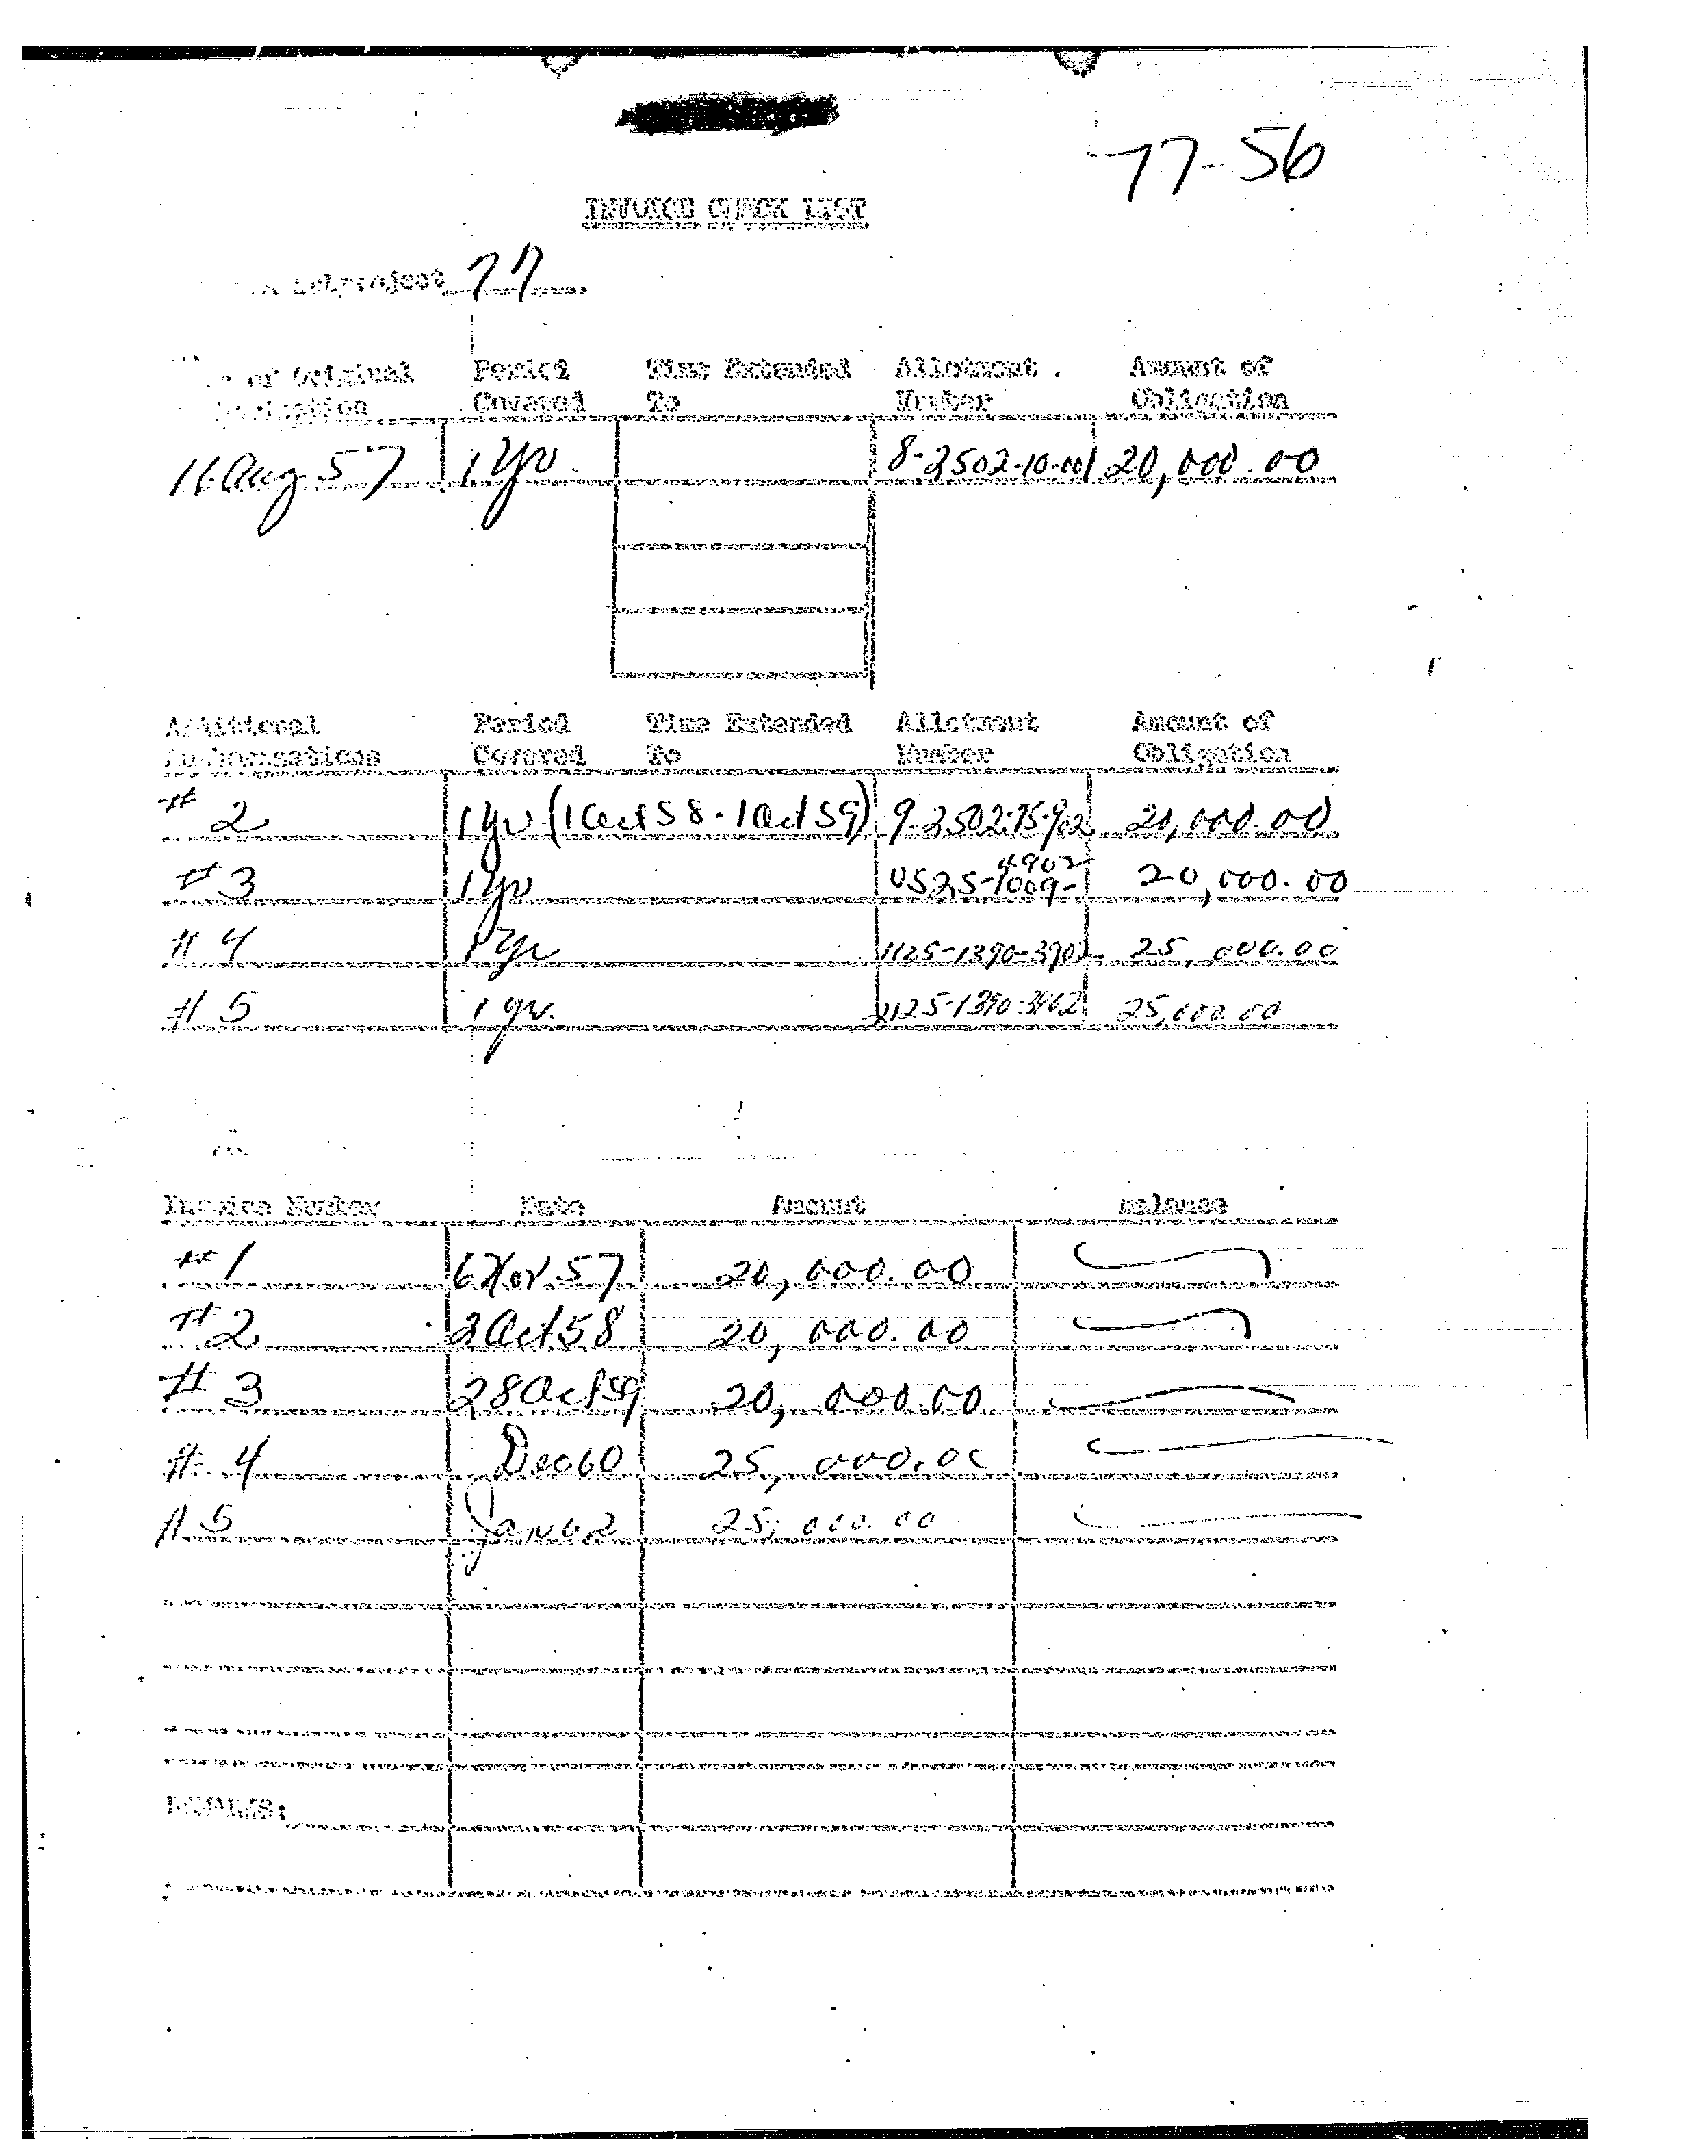 77-56
INVOICE CHECK LIST
Subproject 77
of Original Period Time Extended Allotment Amount of
Covered To Number Obligation
16 Aug 57 1 yr 8-2502-10-001 20,000.00
Additional Period Time Extended Allotment Amount of
Authorizations Covered To Number Obligation
# 2 1 yr (1 Oct 58 - 1 Oct 59) 9-2502-75-902 20,000.00
# 3 1 yr 0525-1009-4902 20,000.00
# 4 1 yr 1125-1390-3902 25,000.00
# 5 1 yr. 2125-1390-3902 25,000.00
Invoice Number Date Amount Balance
# 1 6 Nov 57 20,000.00
# 2 2 Oct 58 20,000.00
# 3 28 Oct 59 20,000.00
# 4 Dec 60 25,000.00
# 5 Jan 62 25,000.00
REMARKS: